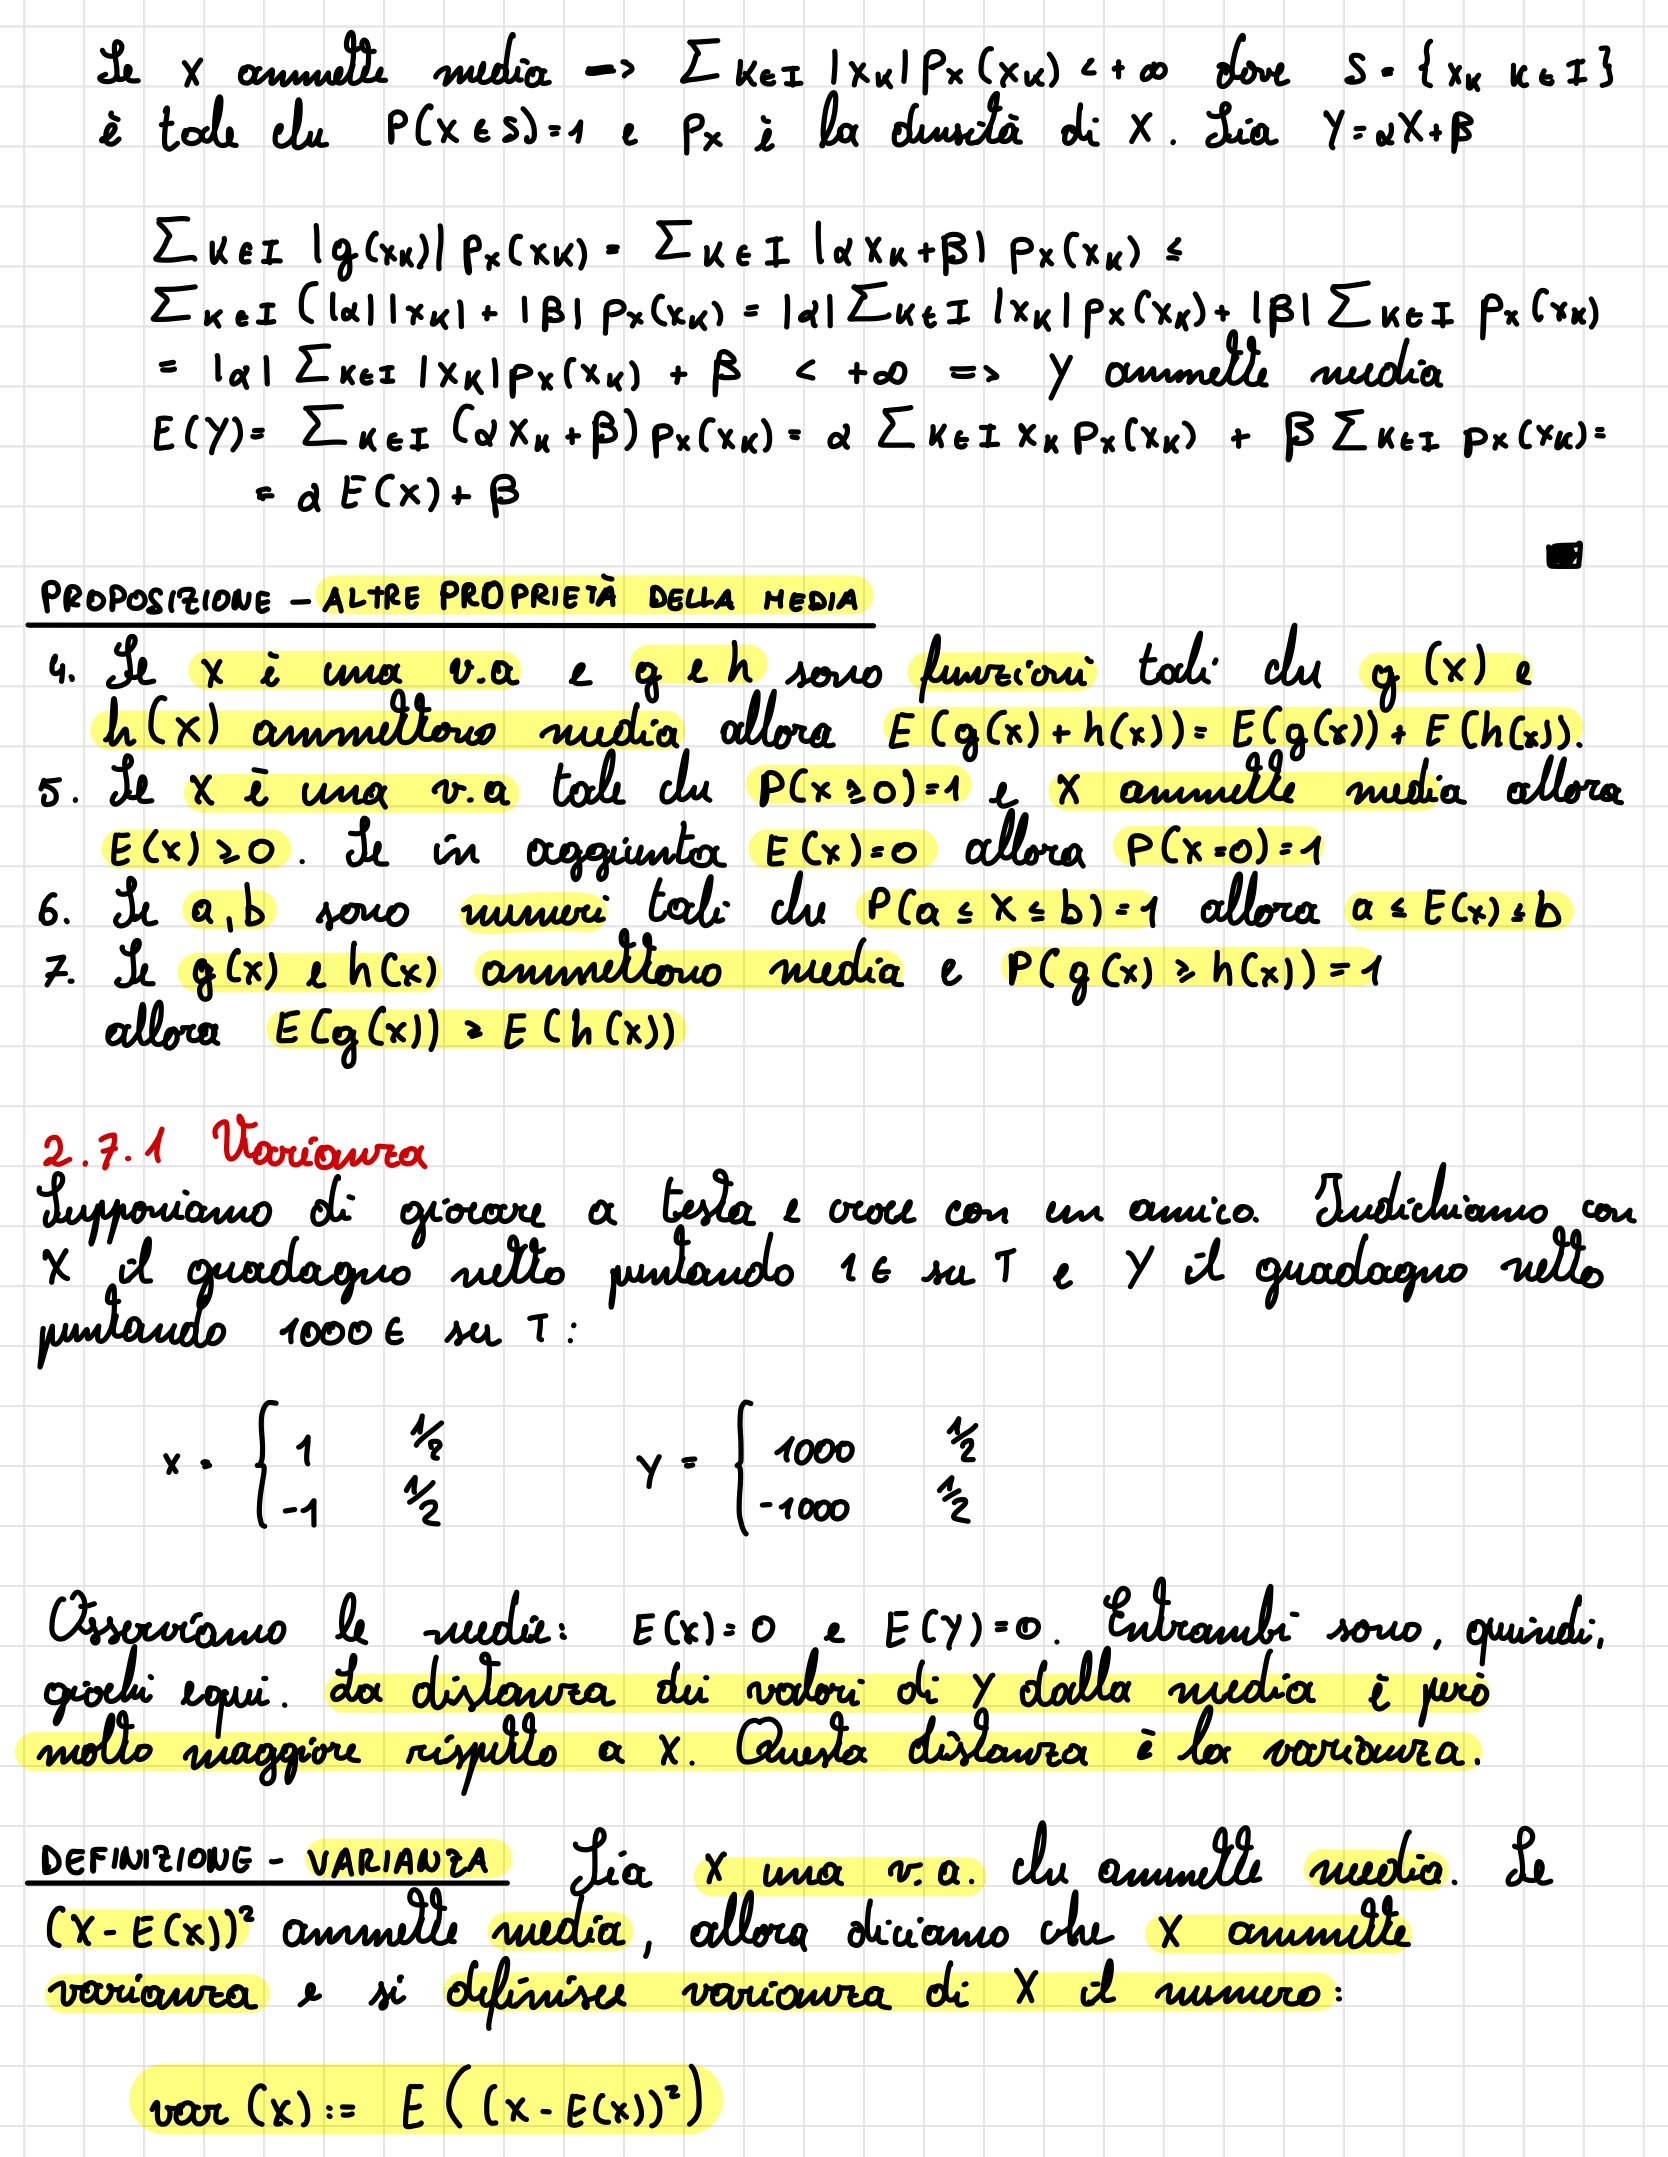 Se X ammette media => ∑ K∈I |xK| Px (xK) < +∞ dove S = {xK K∈I}
è tale che P(X∈S)=1 e Px è la densità di X. Sia Y=αX+β
∑ K∈I |g(xK)| Px(xK) = ∑ K∈I |αxK+β| Px(xK) ≤
∑ K∈I (|α||xK| + |β| Px(xK) = |α| ∑ K∈I |xK| Px(xK) + |β| ∑ K∈I Px(xK)
= |α| ∑ K∈I |xK| Px(xK) + β < +∞ => Y ammette media
E(Y)= ∑ K∈I (αxK+β) Px(xK) = α ∑ K∈I xK Px(xK) + β ∑ K∈I Px(xK)=
= α E(X)+β
PROPOSIZIONE - ALTRE PROPRIETÀ DELLA MEDIA
4. Se X è una v.a e g e h sono funzioni tali che g(x) e
h(x) ammettono media allora E(g(x)+h(x))= E(g(x))+ E(h(x)).
5. Se X è una v.a tale che P(X≥0)=1 e X ammette media allora
E(X)≥0. Se in aggiunta E(X)=0 allora P(X=0)=1
6. Se a,b sono numeri tali che P(a≤X≤b)=1 allora a≤E(X)≤b
7. Se g(x) e h(x) ammettono media e P(g(x)≥h(x))=1
allora E(g(x)) ≥ E(h(x))
2.7.1 Varianza
Supponiamo di giocare a testa e croce con un amico. Indichiamo con
X il guadagno netto puntando 1€ su T e Y il guadagno netto
puntando 1000€ su T:
X = { 1 1/2 Y = { 1000 1/2
-1 1/2 -1000 1/2
Osserviamo le medie: E(X)=0 e E(Y)=0. Entrambi sono, quindi,
giochi equi. La distanza dei valori di Y dalla media è però
molto maggiore rispetto a X. Questa distanza è la varianza.
DEFINIZIONE - VARIANZA Sia X una v.a. che ammette media. Se
(X-E(X))² ammette media, allora diciamo che X ammette
varianza e si definisce varianza di X il numero:
var (X):= E((X-E(X))²)